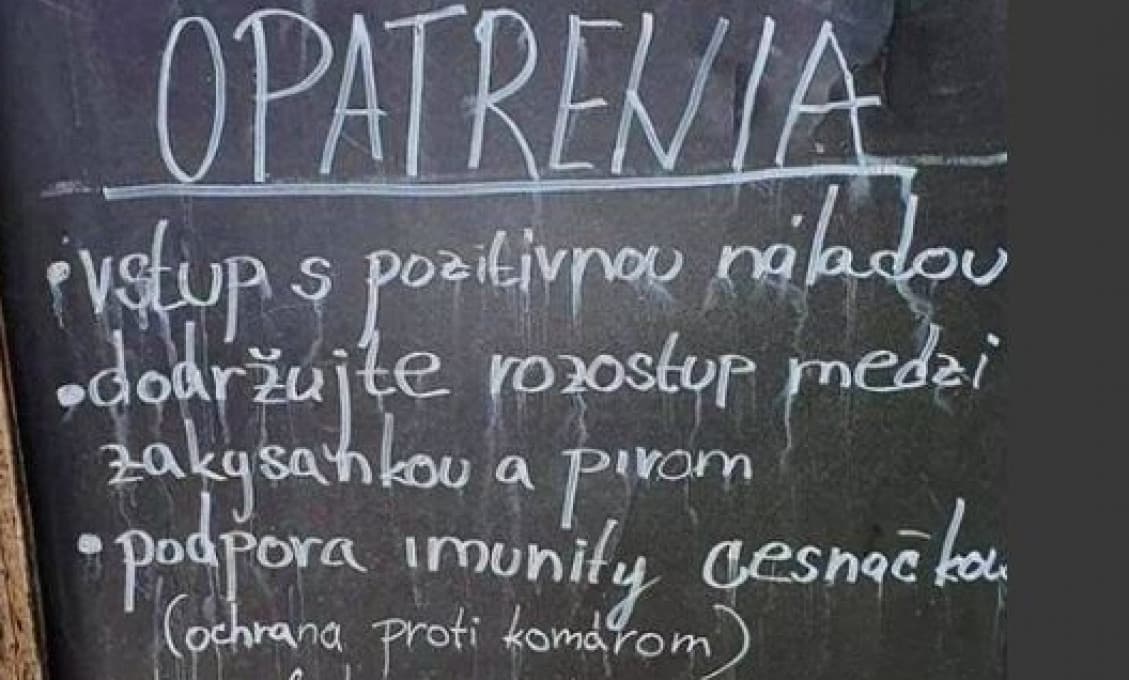 OPATRENIA
• vstup s pozitívnou náladou
• dodržujte rozostup medzi
zakysankou a pivom
• podpora imunity cesnačkou
(ochrana proti komárom)